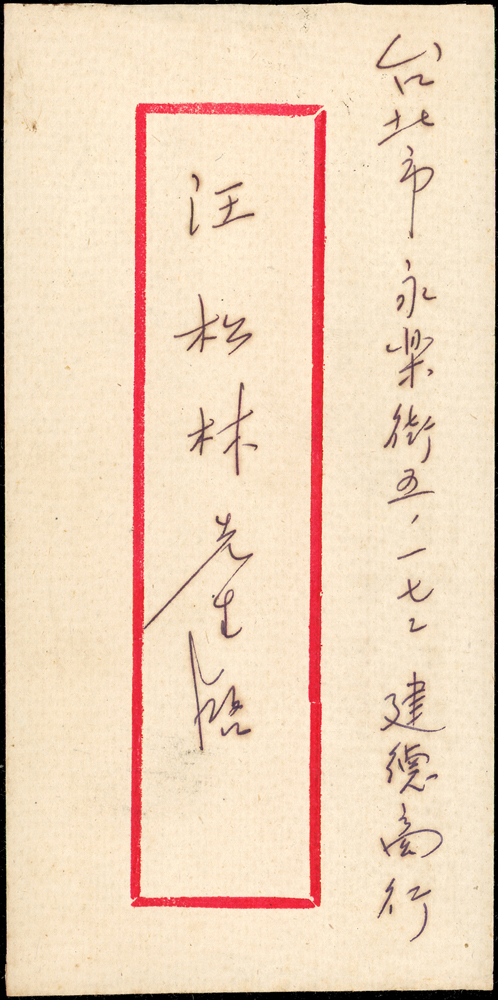 台北市永樂街五、一七二 建德商行
汪松林先生啓